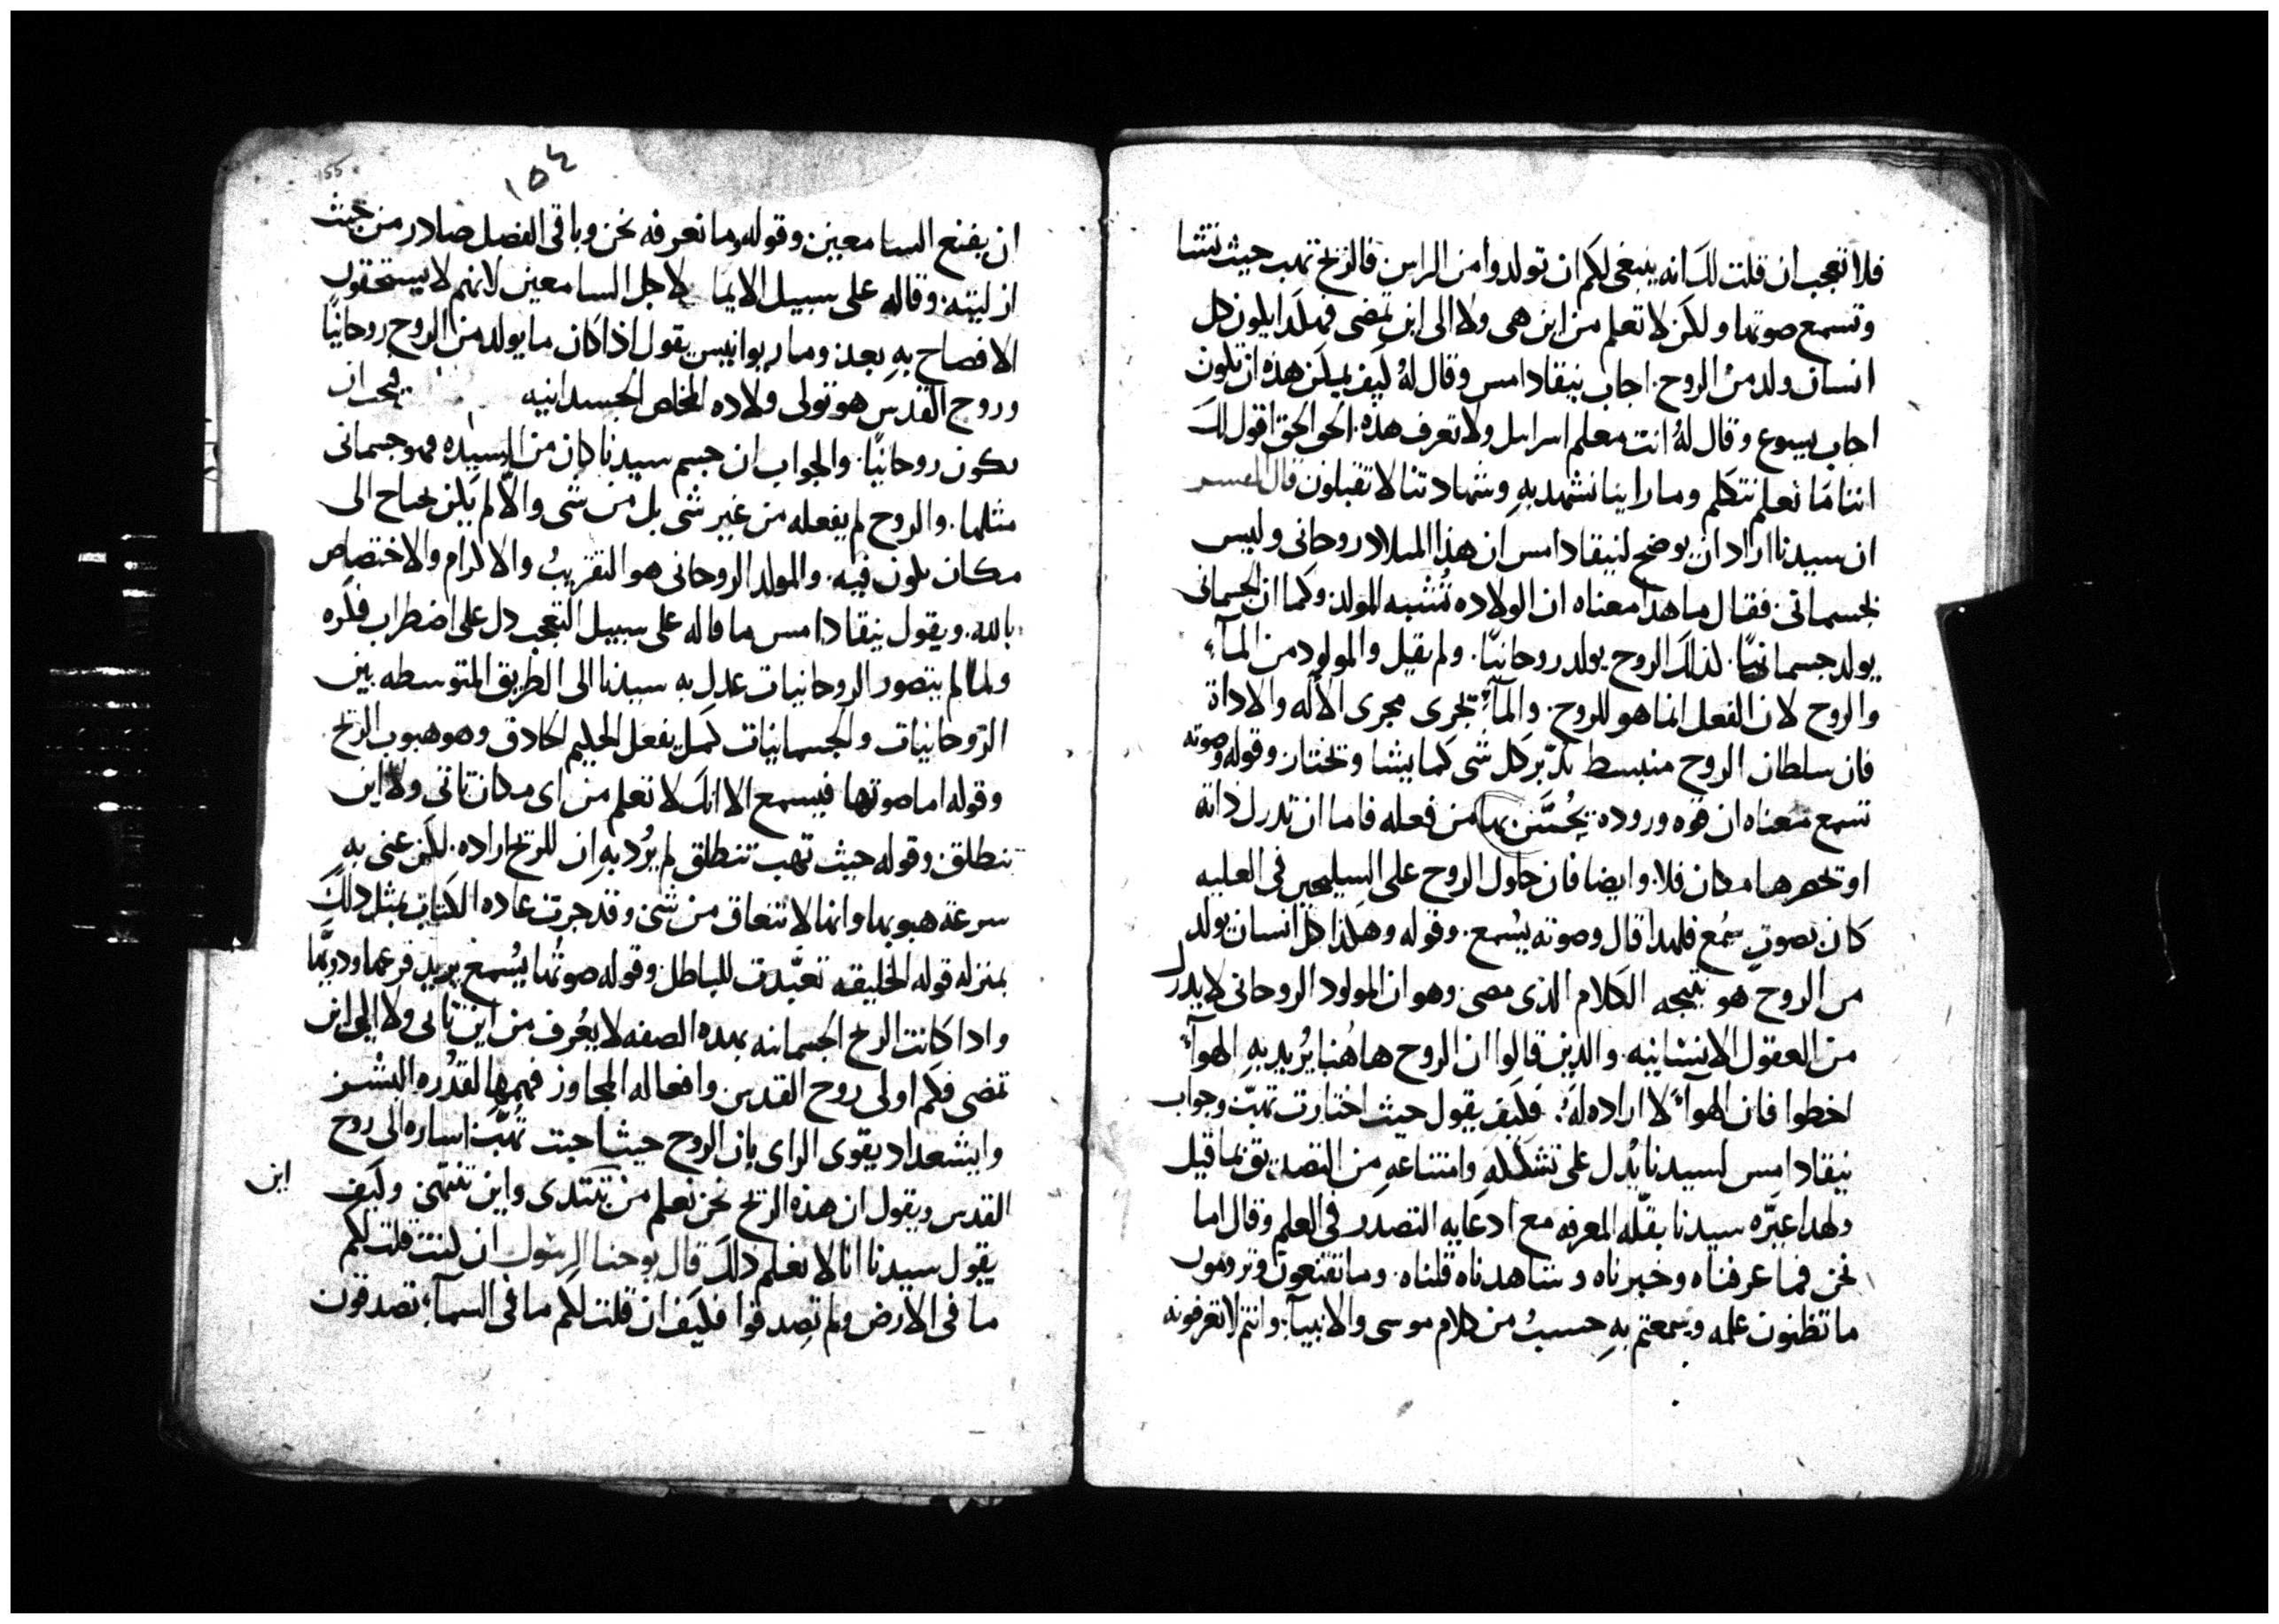 فلا تعجب ان قلت لك انه ينبغى لكم ان تولدوا من الراس فالريح تهب حيث تشا
وتسمع صوتها ولكن لا تعلم من اين هى ولا الى اين تمضى فهكذا يكون كل
انسان ولد من الروح. اجاب نيقاداموس وقال له كيف يمكن هذه ان تكون
اجاب يسوع وقال له انت معلم اسرايل ولا تعرف هذه. الحق الحق اقول لك
اننا ما نعلم نتكلم وما راينا نشهد به وشهادتنا لا تقبلون قال المفسر
ان سيدنا اراد ان يوضح لنيقادامس ان هذا الميلاد روحانى وليس
بجسمانى. فقال ما هذا معناه ان الولاده تُشبه المولد. وكما ان الجسمانى
يولد جسمانيًا. كذلك الروح يولد روحانيًا. ولم يقيل والمولود من المآء
والروح لان الفعل انما هو للروح. والمآء تجرى مجرى الآله والاداة
فان سلطان الروح منبسط تدبّر كل شى كما يشا وتختار وقوله وصوته
تسمع معناه ان قوه وروده يُحسَّن بها من فعله فاما ان تدرك ذاته
او تحصرها مكان فلا. وايضا فان حلول الروح على السليحين فى العليه
كان بصوتٍ سُمع فلهذا قال وصوته يسُمع. وقوله وهكذا كل انسان يولد
من الروح هو نتيجه الكلام الذى مضى وهو ان المولود الروحانى لا يدرك
من العقول الانسانيه. والذين قالوا ان الروح هاهُنا يُريد به الهوآء
اخطوا فان الهوآء لا اراده له. فكيف يقول حيث اختارت تهبّ وجواب
نيقادامس لسيدنا يُدل على تشككه وامتناعه من التصديق بما قيل
ولهذا عيَّره سيدنا بقلّه المعرفه مع ادعايه التصدر فى العلم وقال اما
نحن فما عرفناه وخبرناه وشاهدناه قلناه. وما تقتنعون وترومون
ما تظنون علمه وسمعتم به حسبُ من كلام موسى والانبيآء. وانتم لا تعرفونه
١٥٤
155
ان يقنع السامعين وقوله وما نعرفه نحن وباقى الفصل صادر من حيث
ازليته. وقاله على سبيل الايما لاجل السامعين لانهم لا يستحقون
الافصاح به بعد. ومار يوانيس يقول اذا كان ما يولد من الروح روحانيًا
وروح القدس هو تولى ولاده المخلص الجسدانيه فيجب ان
يكون روحانيًا. والجواب ان جسم سيدنا كان من السيده فهو جسمانى
مثلها. والروح لم يفعله من غير شى بل من شى والّا لم يكن يحتاج الى
مكان يكون فيه. والمولد الروحانى هو التقريبُ والاكرام والاختصاص
بالله. ويقول نيقادامس ما قاله على سبيل التعجب دل على اضطراب فكره
ولما لم يتصور الروحانيات عدل به سيدنا الى الطريق المتوسطه بين
الرّوحانيات والجسمانيات كمثل يفعل الحكيم الحاذق وهو هبوب الريح
وقوله اما صوتها فيسمع الا انك لا تعلم من اى مكان تاتى ولا اين
تنطلق وقوله حيث تهب تنطلق لم يُرد به ان للريح اراده. لكن عنى به
سرعة هبوبها وانها لا تنعاق من شى وقد جرت عاده الكتاب بمثل ذلك
بمنزله قوله الخليقه تعبّدت للباطل وقوله صوتُها يُسمع يريد قرعها ودويَّها
واذا كانت الريح الجسمانيه بهذه الصفه لا يعُرف من اين تاتى ولا الى اين
تمضى فكم اولى روح القدس وافعاله المجاوز فهمها لقدُره البشر
وايشعداد يقوى الراى بان الروح حيث احبت تُهبّ اشاره الى روح
القدس ويقول ان هذه الريح نحن نعلم من تبتدى واين تنتهى وكيف
اين
يقول سيدنا انا لا نعلم ذلك قال يوحنا الرسول ان كنت قلت لكم
ما فى الارض ولم تصدقوا فكيف ان قلت لكم ما فى السمآء تصدقون